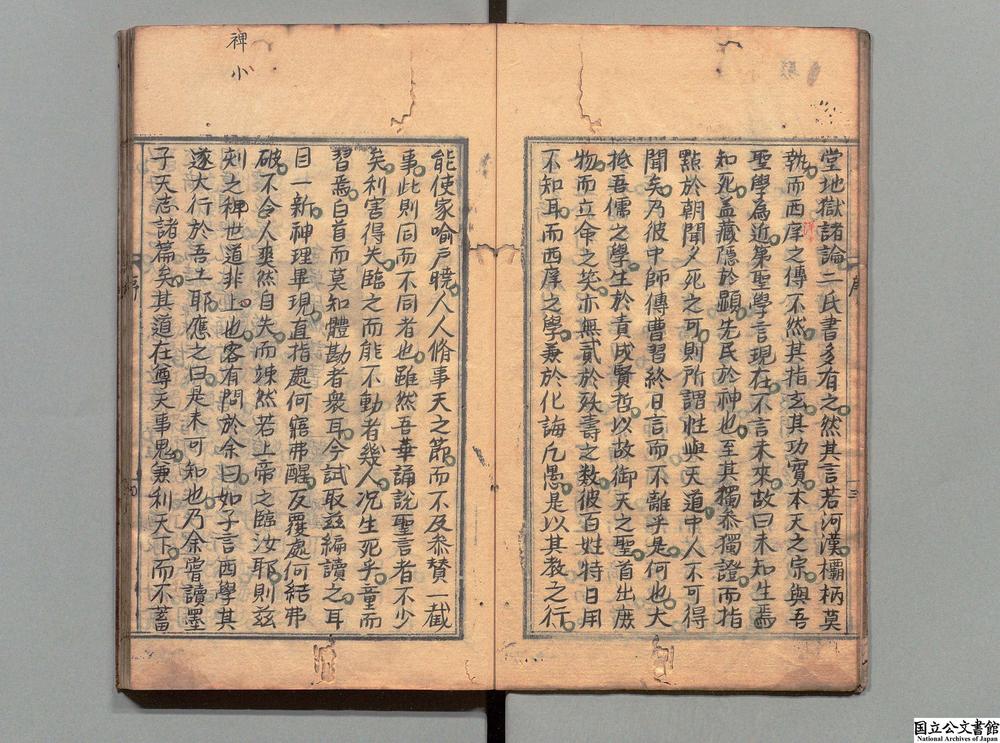 堂地獄諸論二氏書多有之然其言若河漢欛柄莫
執而西庠之傳不然其指玄其功實本天之宗與吾
聖學為近第聖學言現在不言未來故曰未知生焉
知死盖藏隱於顯先民於神也至其獨叅獨證而指
點於朝聞夕死之可則所謂性與天道中人不可得
聞矣乃彼中師傳曹習終日言而不離乎是何也大
抵吾儒之學生於責成賢哲以故御天之聖首出庶
物而立命之筴亦無貳於殀壽之數彼百姓特日用
不知耳而西庠之學兼於化誨凢愚是以其教之行
能使家喻戶曉人人脩事天之節而不及叅贊一截
事此則同而不同者也雖然吾華誦說聖言者不少
矣利害得失臨之而能不動者幾人况生死乎童而
習焉白首而莫知體勘者衆耳今試取玆編讀之耳
目一新神理畢現直指處何寤弗醒反覆處何結弗
破不令人爽然自失而竦然若上帝之臨汝耶則玆
刻之稗世道非上也客有問於余曰如子言西學其
遂大行於吾土耶應之曰是未可知也乃余嘗讀墨
子天志諸篇矣其道在尊天事鬼兼利天下而不蓄
序
三
序
裨
小
国立公文書館
National Archives of Japan